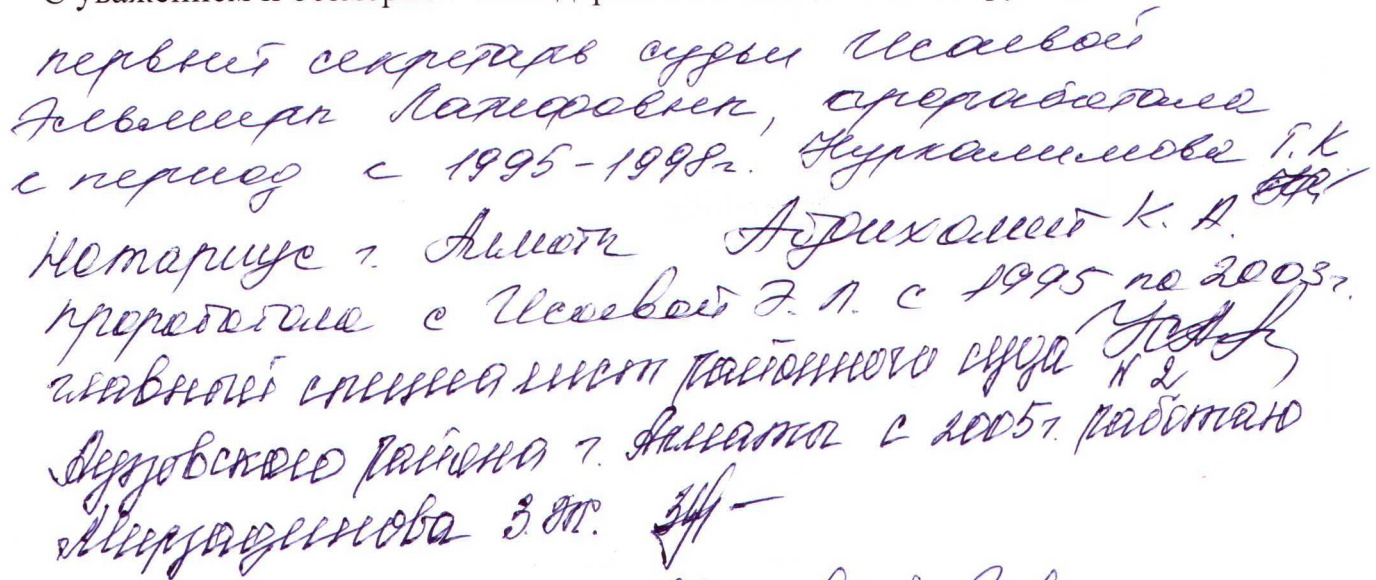 С уважением и
первый секретарь судьи Исаевой
Эльмиры Латифовны, проработала
с период с 1995-1998г. Нурхалимова Т.К.
Нотариус г. Алматы Абдрихамит К. А.
проработала с Исаевой Э. Л. с 1995 по 2003г.
главный специалист районного суда №2
Ауэзовского района г. Алматы с 2005г. работаю
Мирзадинова З. Ж.